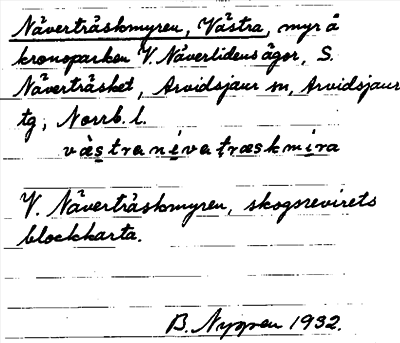 Näverträskmyren, Västra, myr å
kronoparken V. Näverlidens ägor, S.
Näverträsket, Arvidsjaur sn, Arvidsjaur
tg, Norrb. l.
västra névatræskmíra
V. Näverträskmyren, skogsrevirets
blockkarta.
B. Nyppen 1932.